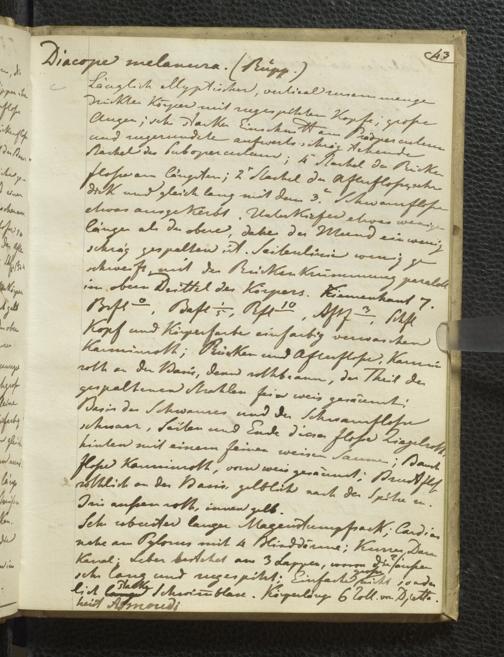 43
Diacope melanura. (Rüpp.)
Länglich elyptischer, vertical zusammenge
drükter Körper mit zugespiztem Kopfe; große
Augen; sehr starker Einschnitt am Präoperculum
und zugerundete aufwerts schräg stehende
Stachel des Suboperculum; 4' Stachel der Rücken
flosse am längsten; 2' Stachel der Afterflosse sehr
dick und gleich lang mit dem 3'. Schwanzflosse
etwas ausgekerbt. Unterkiefer etwas wenig
länger als der obere, daher der Mund ein wenig
schräg gespalten ist. Seitenlinie wenig ge
schweift, mit der Rückenkrümmung parallel
im obern Drittel des Körpers. Kiemenhaut 7.
Brfl, Bafl 1/5, Rfl 10, Aftf 3, Schfl
Kopf und Körperfarbe einfarbig verwaschen
Karminroth; Rücken und Afterflosse, Karmin
roth an der Basis, dann rothbraun, der Theil der
gespaltenen Strahlen fein weis gesäumt;
Basis des Schwanzes und der Schwanzflosse
schwarz, Seiten und Ende dieser flosse Ziegelroth,
hinten mit einem feinen weisen Saume; Bauch
flosse Karminroth, vorn weis gesäumt; Brustflosse
röthlich an der Basis, gelblich nach der Spitze zu.
Iris aussen roth, innen gelb.
Ein robuster langer Magenstumpfsack; Cardia
nahe am Pylorus mit 4 Blinddärme; Kurzer Darm
Kanal; Leber bestehet aus 3 Lappen, wovon die äußere
sehr lang und zugespizt; Einfache große
starke Schwimmblase. Körperlänge 6 Zoll. von Djetta.
heist Asmoudi